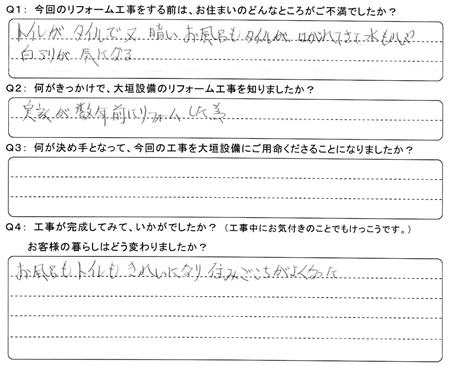 Q1： 今回のリフォーム工事をする前は、お住まいのどんなところがご不満でしたか？
トイレが タイルで 暗い お風呂も タイルが はがれてきて 水もれや
白アリが 気になる
Q2： 何がきっかけで、大垣設備のリフォーム工事を知りましたか？
実家が 数年前にリフォームした
Q3： 何が決め手となって、今回の工事を大垣設備にご用命くださることになりましたか？
Q4： 工事が完成してみて、いかがでしたか？ （工事中にお気付きのことでもけっこうです。）
お客様の暮らしはどう変わりましたか？
お風呂も トイレも きれいになり 住みごこちがよくなった